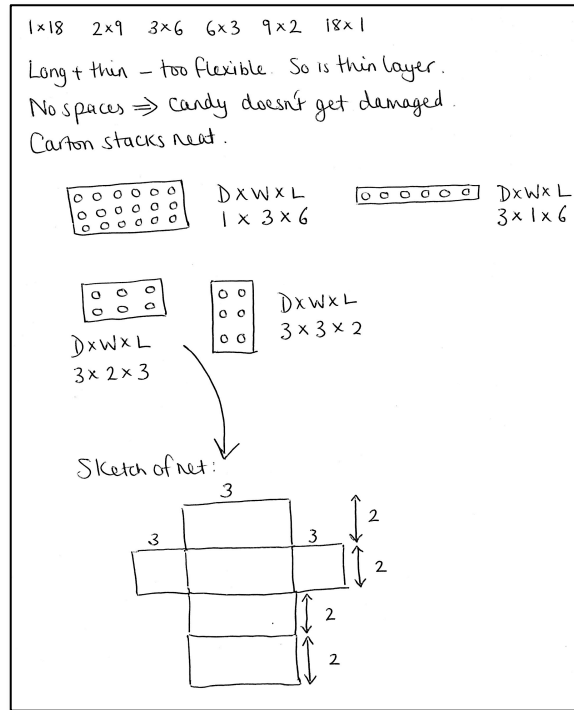 1×18 2×9 3×6 6×3 9×2 18×1
Long + thin – too flexible. So is thin layer.
No spaces ⇒ candy doesn't get damaged.
Carton stacks neat.
D×W×L
1 × 3 × 6
D×W×L
3 × 1 × 6
D×W×L
3 × 2 × 3
D×W×L
3 × 3 × 2
Sketch of net:
3
2
3
3
2
2
2